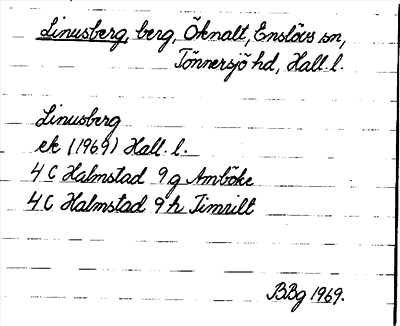 Linusberg, berg, Öknalt, Enslövs sn,
Tönnersjö hd, Hall. l.
Linusberg
ek (1969) Hall. l.
4 C Halmstad 9 g Amböke
4 C Halmstad 9 h Timrilt
BBg 1969.